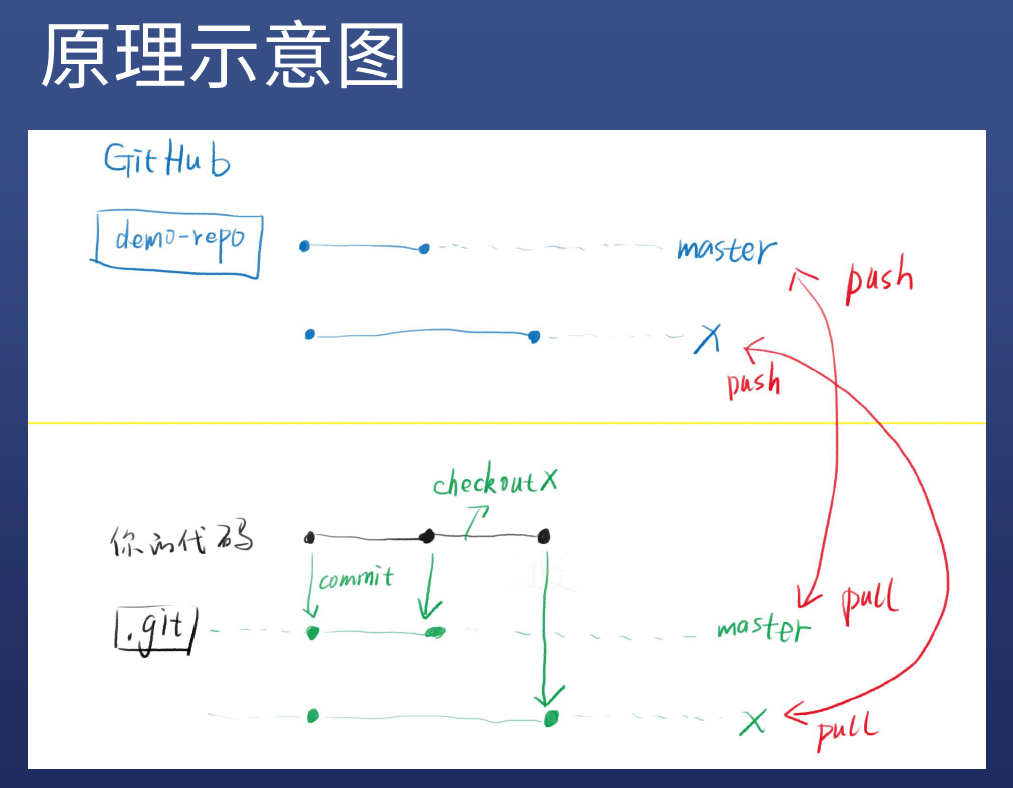 原理示意图
GitHub
demo-repo
master
push
X
push
checkout X
你的代码
commit
pull
.git
master
X
pull